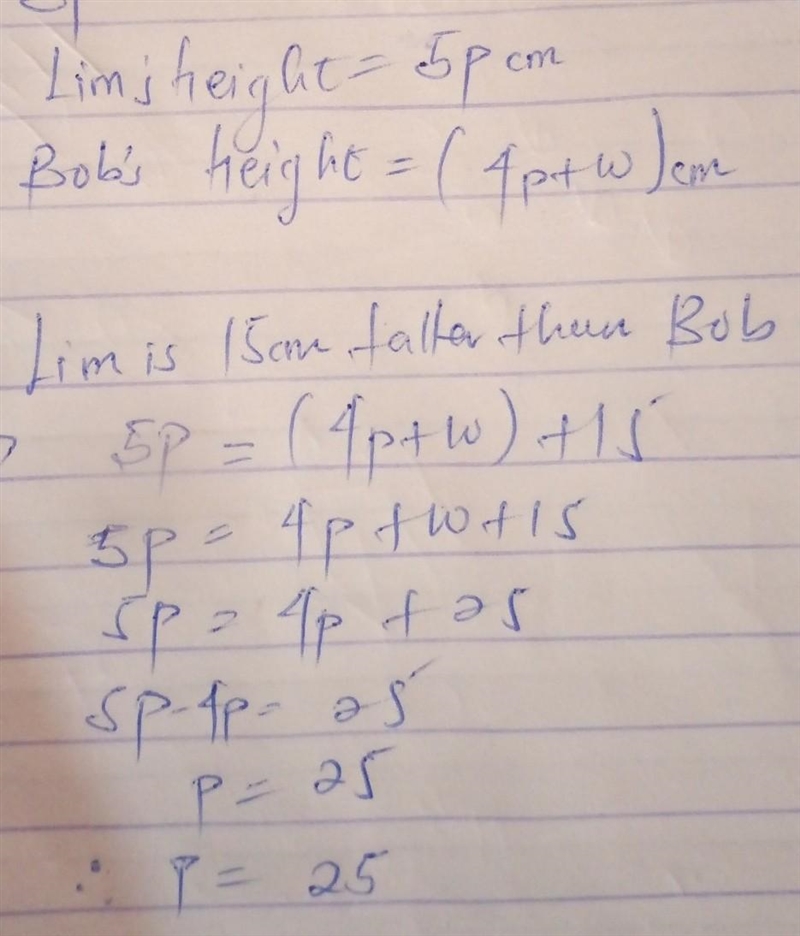 Lim's height = 5p cm
Bob's height = (4p+10)cm
Lim is 15cm taller than Bob
5p = (4p+10)+15
5p = 4p+10+15
5p = 4p + 25
5p-4p = 25
p = 25
∴ p = 25